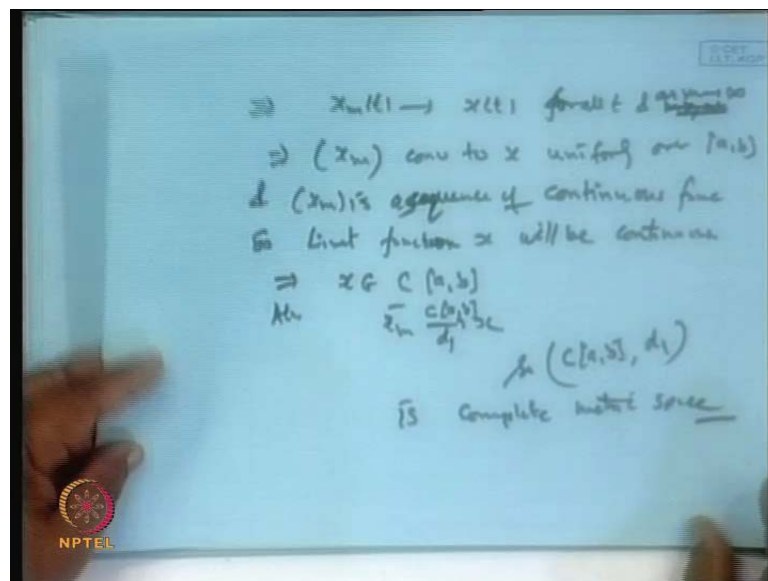 ⇒ x_m(t) → x(t) for all t & as m → ∞
⇒ (x_m) conv to x uniformly over [a,b]
& (x_m) is a sequence of continuous func
So Limit function x will be continuous
⇒ x ∈ C[a,b]
Also x_m C[a,b] d_1 x
So (C[a,b], d_1)
is complete metric space
NPTEL